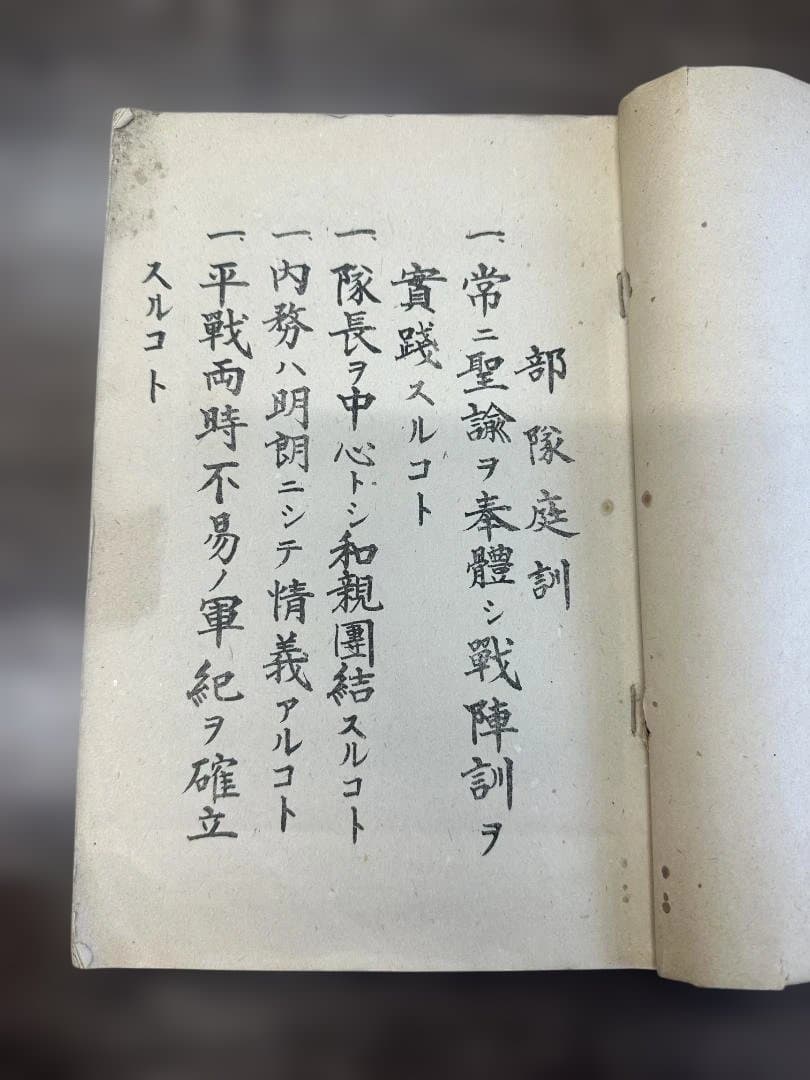 部隊庭訓
一、常ニ聖諭ヲ奉體シ戰陣訓ヲ
實踐スルコト
一、隊長ヲ中心トシ和親團結スルコト
一、内務ハ明朗ニシテ情義アルコト
一、平戰両時不易ノ軍紀ヲ確立
スルコト